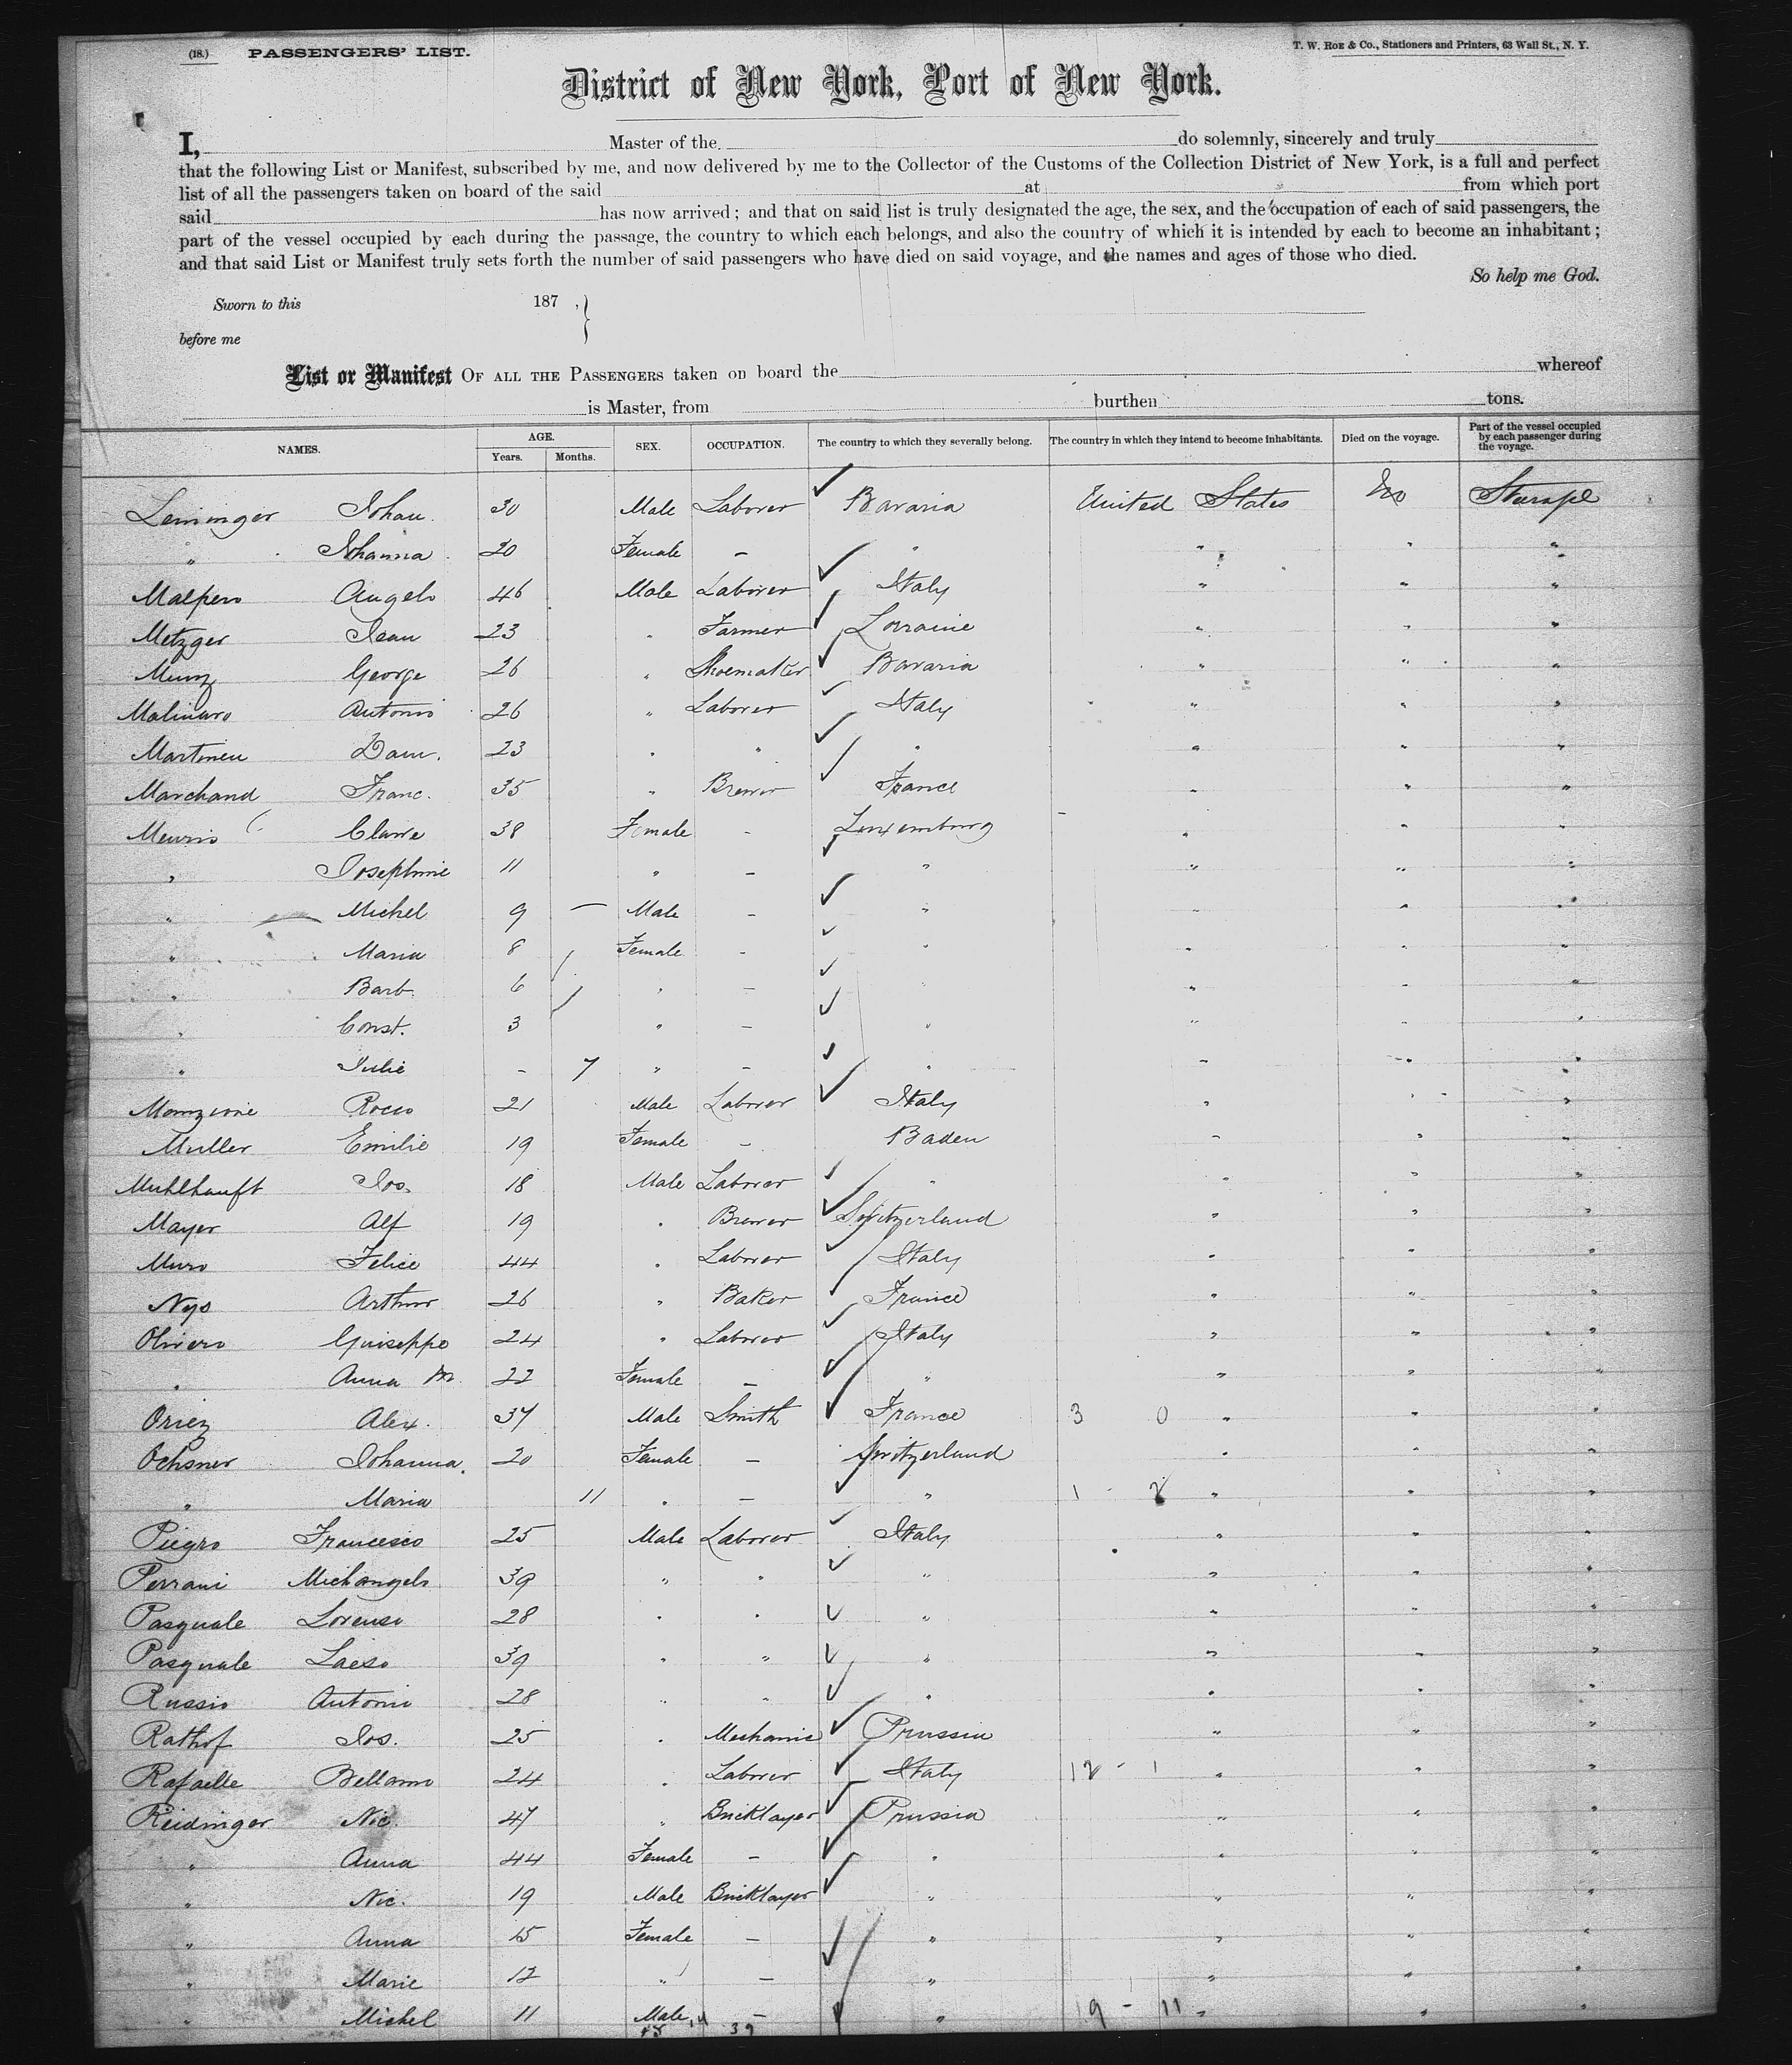 (18.) PASSENGERS' LIST. T. W. ROE & Co., Stationers and Printers, 63 Wall St., N. Y.
District of New York, Port of New York.
I, Master of the do solemnly, sincerely and truly
that the following List or Manifest, subscribed by me, and now delivered by me to the Collector of the Customs of the Collection District of New York, is a full and perfect
list of all the passengers taken on board of the said at from which port
said has now arrived; and that on said list is truly designated the age, the sex, and the occupation of each of said passengers, the
part of the vessel occupied by each during the passage, the country to which each belongs, and also the country of which it is intended by each to become an inhabitant;
and that said List or Manifest truly sets forth the number of said passengers who have died on said voyage, and the names and ages of those who died.
So help me God.
Sworn to this 187 , }
before me
List or Manifest OF ALL THE PASSENGERS taken on board the whereof
is Master, from burthen tons.
NAMES. AGE. Years. Months. SEX. OCCUPATION. The country to which they severally belong. The country in which they intend to become inhabitants. Died on the voyage. Part of the vessel occupied by each passenger during the voyage.
Leininger Johan 30 Male Laborer Bavaria United States No Steerage
" Johanna 20 Female - " " " "
Malpero Angelo 46 Male Laborer Italy " " "
Metzger Jean 23 " Farmer Lorraine " " "
Munz George 26 " Shoemaker Bavaria " " "
Malinaro Antonio 26 " Laborer Italy " " "
Martineu Dam. 23 " " " " " "
Marchand Franc. 35 " Brewer France " " "
Meuris Claire 38 Female - Luxemburg " " "
" Josephine 11 " - " " " "
" Michel 9 - Male - " " " "
" Maria 8 Female - " " " "
" Barb. 6 " - " " " "
" Const. 3 " - " " " "
" Julie - 7 " - " " " "
Momzione Rocco 21 Male Laborer Italy " " "
Muller Emilie 19 Female - Baden " " "
Muhlhauft Jos. 18 Male Laborer " " " "
Mayer Alf 19 " Brewer Switzerland " " "
Muro Felice 44 " Laborer Italy " " "
Nys Arthur 26 " Baker France " " "
Olivero Guiseppe 24 " Laborer Italy " " "
" Anna M 22 Female - " " " "
Oriez Alex. 37 Male Smith France 3 0 " " "
Ochsner Johanna 20 Female - Switzerland " " "
" Maria 11 " - " 1 - 2 " " "
Piegro Francesco 25 Male Laborer Italy " " "
Perrani Michangelo 39 " " " " " "
Pasquale Lorenso 28 " " " " " "
Pasquale Laeso 39 " " " " " "
Russio Antonio 28 " " " " " "
Rathof Jos. 25 " Mechanic Prussia " " "
Rafaelle Bellamo 24 " Laborer Italy 12 - 1 " " "
Reidinger Nic. 47 " Bricklayer Prussia " " "
" Anna 44 Female - " " " "
" Nic. 19 Male Bricklayer " " " "
" Anna 15 Female - " " " "
" Marie 12 " - " " " "
" Michel 11 Male - " 19 - 11 " " "
39